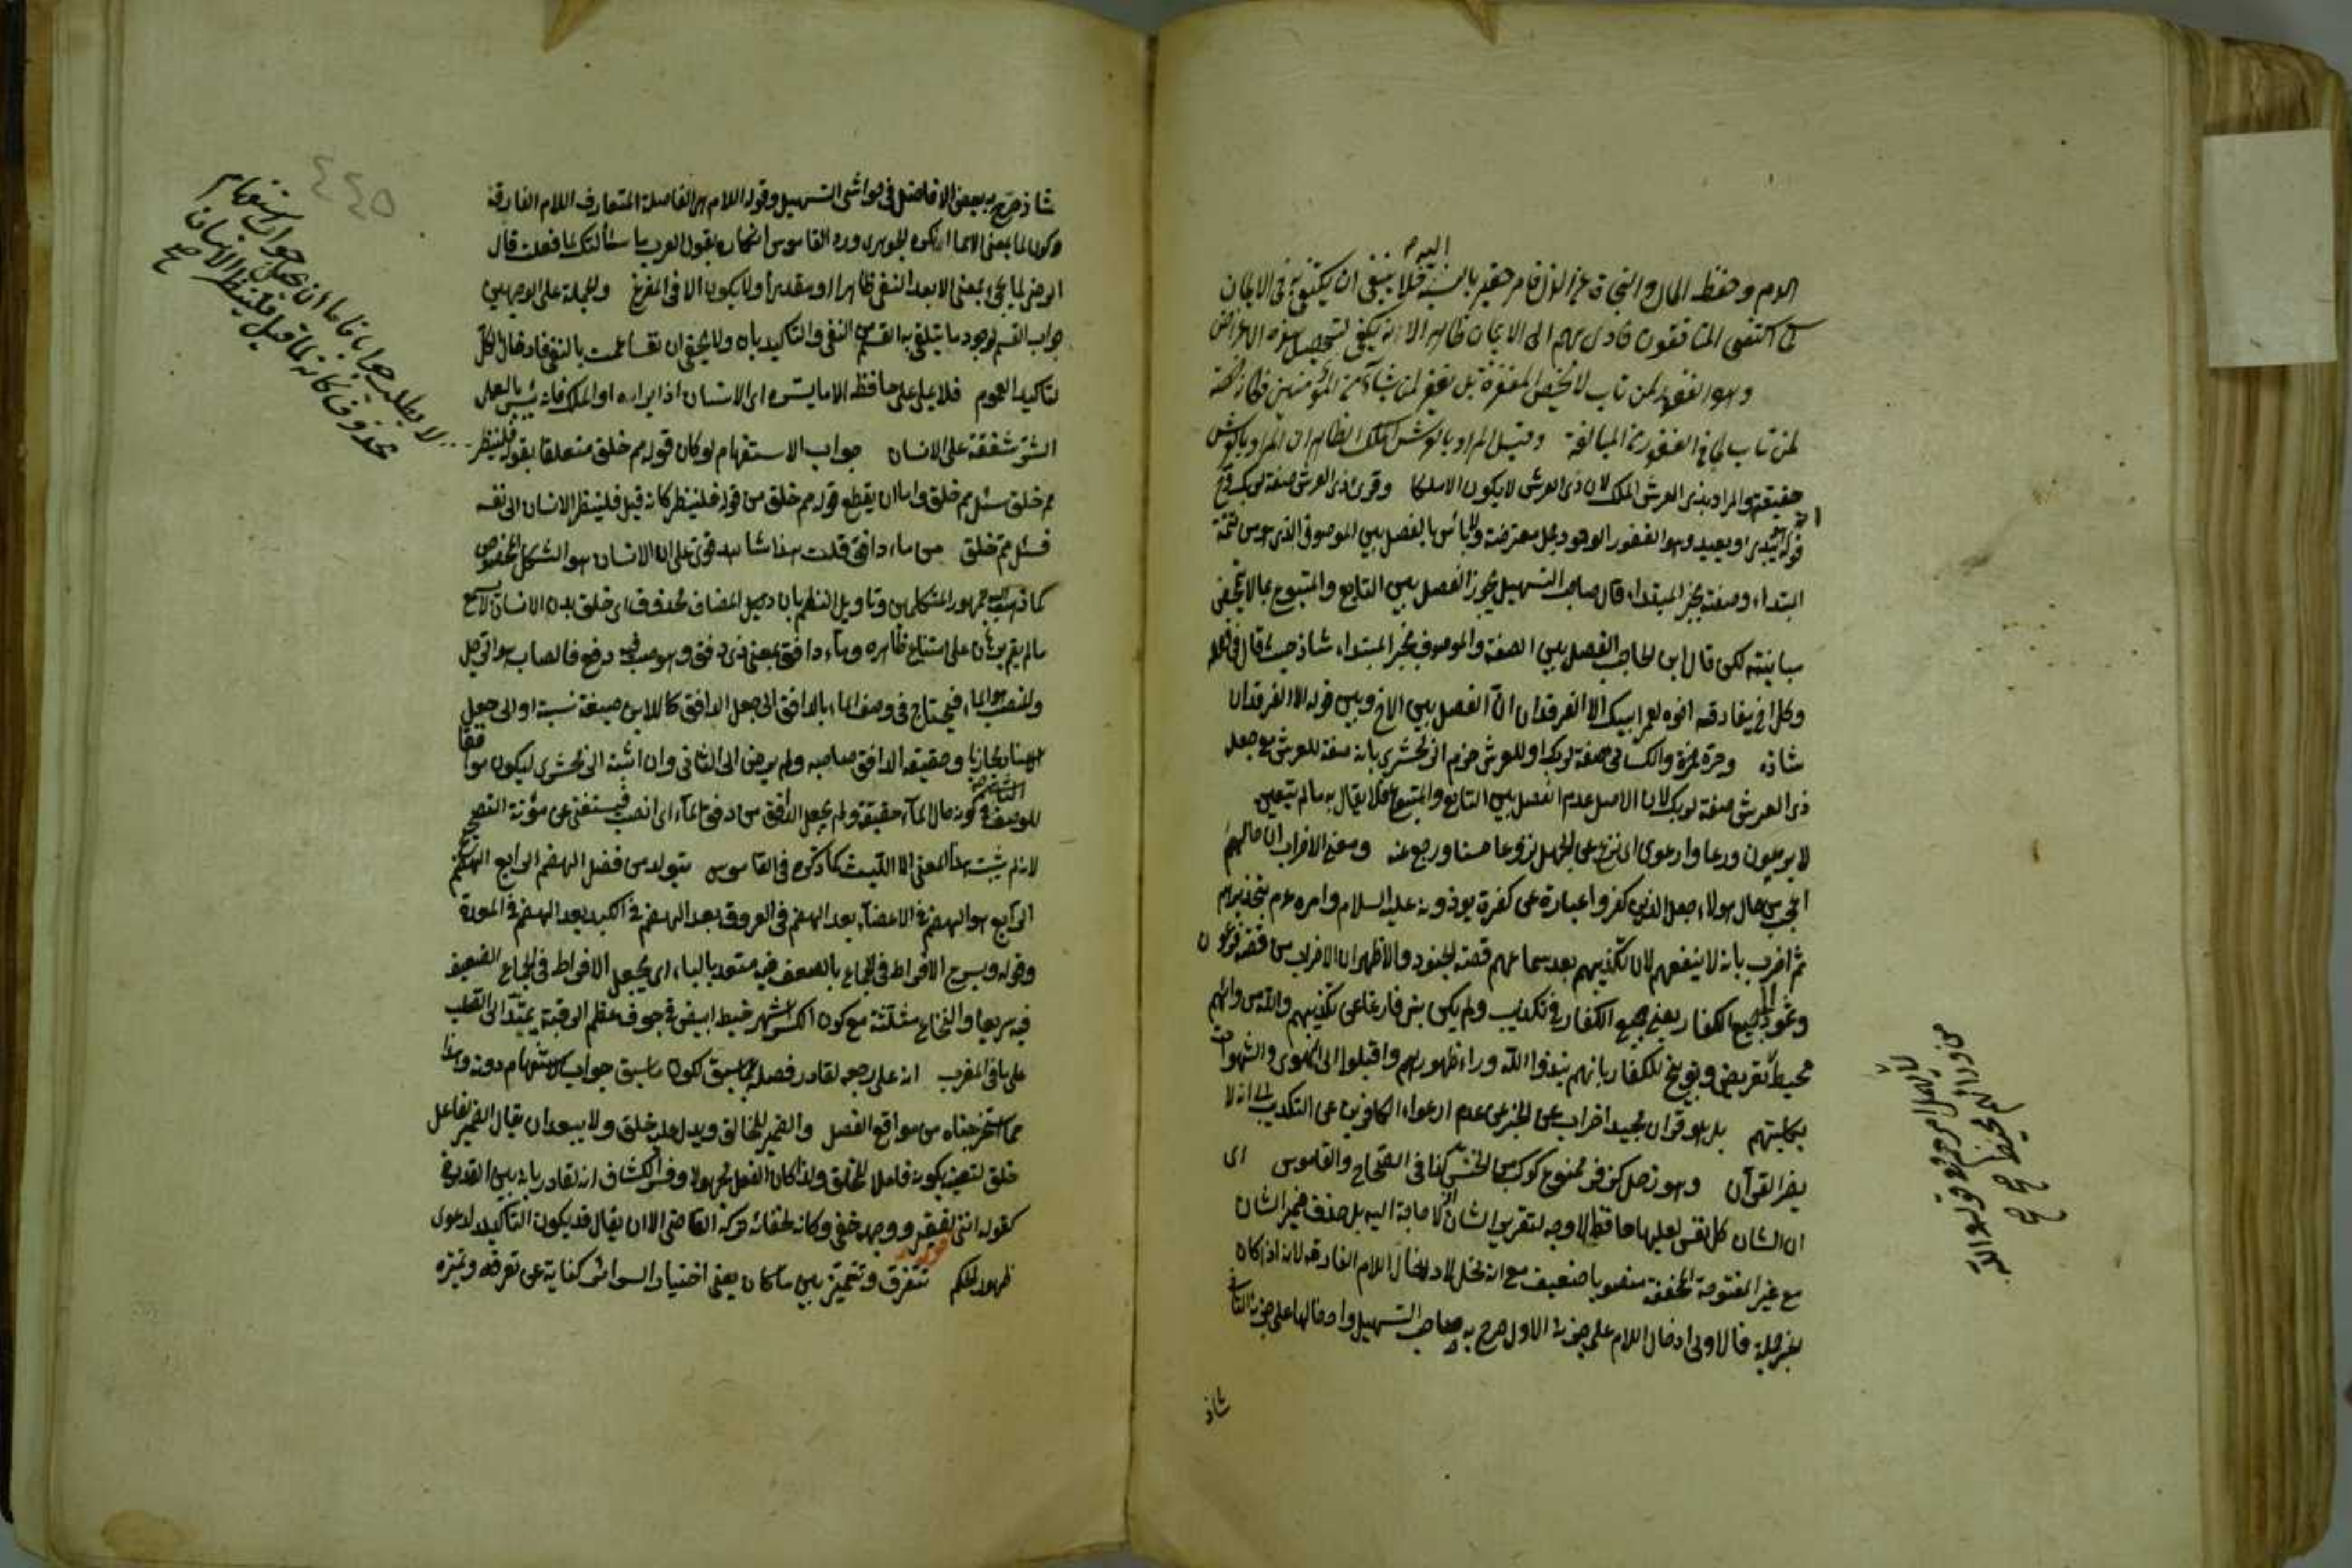 اليه م
الدم وحفظ المال والنجاة عن الذل فامر حقير بالنسبة فلا ينبغي ان يكتفى به في الايمان
كما اكتفى المنافقون فادى بهم الى الايمان ظاهرا لانه يكفي لتحصيل هذه الاغراض
وهو الغفور لمن تاب لا يخص المغفرة بل يغفر لمن يشاء من المؤمنين
لمن تاب لما في الغفور من المبالغة وقيل المراد بالعرش الملك الظاهر ان المراد بالعرش
حقيقته والمراد بذي العرش الملك لان ذي العرش لا يكون الا ملكا وقرئ ذي العرش صفة لربك فح
قوله انه هو يبدئ ويعيد وهو الغفور الودود جمل معترضة ولا باس بالفصل بين الموصوف الذي هو من تتمة
المبتداء وصفته بخبر المبتداء قال صاحب التسهيل يجوز الفصل بين التابع والمتبوع بما لا يتمحض
مباينته لكن قال ابن الحاجب الفصل بين الصفة والموصوف بخبر المبتداء شاذ حيث قال في قوله
وكل اخ يفارقه اخوه لعمر ابيك الا الفرقدان ان الفصل بين الاخ وبين قوله الا الفرقدان
شاذ وجره حمزة والكسائي صفة لربك او للعرش جزم الزمخشري بانه صفة للعرش مع جعل
ذي العرش صفة لربك لان الاصل عدم الفصل بين التابع والمتبوع فلا يقال به ما لم يتعين
لا يرعوون ورعا وارعوى اي نزع عن الجهل نزوعا حسنا ورجع عنه ومعنى الاضراب ان حالهم
اعجب من حال هؤلاء جعل الذين كفروا عبارة عن كفرة يوذونه عليه السلام وامره عم بتحذيرهم
ثم اضرب بانه لا ينفعهم لان تكذيبهم بعد سماعهم قصة الجنود والاظهر ان الاضراب من قصة فرعون
وثمود الى جميع الكفار يعني جميع الكفار في تكذيب ولم يكن بنى فارغا عن تكذيبهم والله من ورائهم
محيط تعريض وتوبيخ للكفار بانهم نبذوا الله وراء ظهورهم واقبلوا الى الهوى والشهوات
بكليتهم بل هو قران مجيد اضراب عن الخبر عن عدم ارعواء الكافرين عن التكذيب الى انه لا
يضر القرآن وهو زحل كذا في الصحاح والقاموس اي
ان الشان كل نفس لعليها حافظ لا وجه لتقرير الشان لا حاجة اليه بل حذف ضمير الشان
مع غير المفتوحة المخففة منصوبا ضعيف مع انه يخل لادخال اللام الفارقة لانه اذا كان
خبر جملة فالاولى ادخال اللام على جزئه الاول صرح به صاحب التسهيل وادخالها على جزئه الثاني
شاذ
شاذ صرح به بعض الافاضل في حواشي التسهيل وقوله اللام هي الفاصلة المتعارف اللام الفارقة
وكون لما بمعنى الا مما انكره الجوهري ورده القاموس انكاره بقول العرب سألتك لما فعلت قال
الرضي لما يجيء بمعنى الا بعد النفي ظاهرا او مقدرا ولا يكون الا في المفرغ والجملة على الوجهين
جواب القسم لوجود ما يتلقى به القسم من النفي والتاكيد بان ولا يخفى ان نفسا عمت بالنفي فادخال كل
لتاكيد العموم فلا يملي على حافظه الا ما يسره اي الانسان اذا يراه او الملك
الشر شفقة على الانسان جواب الاستفهام لو كان قوله مم خلق متعلقا بقوله فلينظر
مم خلق سئل مم خلق واما ان يقطع قوله مم خلق من قوله فلينظر كانه قيل فلينظر الانسان الى نفسه
فسئل مم خلق من ماء دافق قلت هذا شاهد قوي على ان الانسان هو الشكل المخصوص
كما ذهب اليه جمهور المتكلمين وتاويل النظم بان يجعل المضاف محذوفا اي خلق بدن الانسان لا يسمع
ما لم يقم برهان على امتناع ظاهره وماء دافق بمعنى ذي دفق وهو صب فيه دفع فالصاب هو الرجل
والمنصب هو الماء فيحتاج في وصف الماء بالدافق الى جعل الدافق كاللابن صيغة نسبة او الى جعل
الاسناد مجازيا وحقيقة الدافق صاحبه ولم يرض الى الثاني وان اثبته الزمخشري ليكون موافقا
في كونه حال الماء حقيقة ولم يجعل الدافق من دفق الماء اي انصب فيستغني عن مؤنة التصحيح
لانه لم يثبت هذا المعنى الا الليث كما ذكره في القاموس يتولد من فضل الهضم الرابع الهضم
الرابع هو الهضم في الاعضاء بعد الهضم في العروق بعد الهضم في الكبد بعد الهضم في المعدة
وقوله ويسرع الافراط في الجماع بالضعف فيه متعد بالباء اي يجعل الافراط في الجماع الضعيف
فيه سريعا والنخاع مثلثة مع كون الكسر اشهر خيط ابيض في جوف عظم الرقبة يمتد الى الصلب
على ما في المغرب انه على رجعه لقادر فصله عما سبق لكون ما سبق جواب الاستفهام دونه وهذا
مما استخرجناه من مواقع الفصل والضمير للخالق ويدل عليه خلق ولا يبعد ان يقال الضمير لفاعل
خلق لتعينه بكونه فاعلا للخلق ولذا كان الفعل مجهولا وفسر الكشاف انه لقادر بانه بين القدرة
كقوله انني لفقير ووجهه خفي وكانه لخفائه تركه القاضي الا ان يقال قد يكون التاكيد لدعوى
ظهور الحكم تتعرف وتتميز بين ما كان يعني اختبار السرائر كناية عن تعرفه وتميزه
لا يطلب جوابا فاما ان يجعل جواب استفهام
محذوف كانه لما قيل فلينظر الانسان
صح
٤٤٥